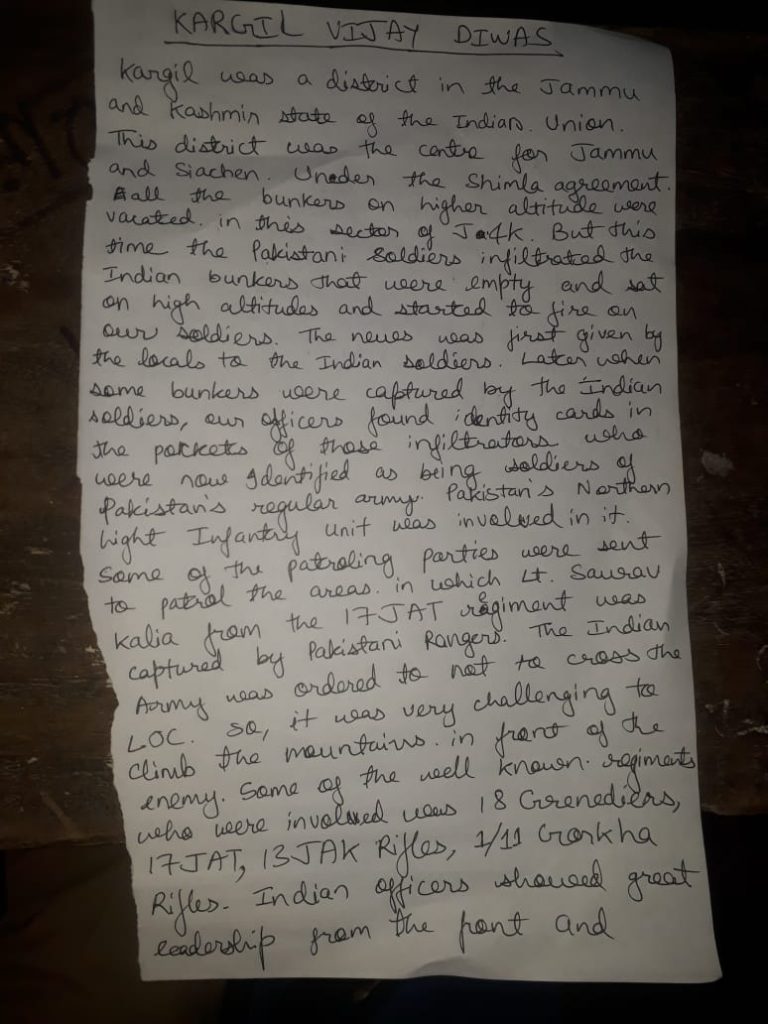 KARGIL VIJAY DIWAS
Kargil was a district in the Jammu
and Kashmir state of the Indian. Union.
This district was the centre for Jammu
and Siachen. Under the Shimla agreement.
all the bunkers on higher altitude were
vacated. in this sector of J&K. But this
time the Pakistani soldiers infiltrated the
Indian bunkers that were empty and sat
on high altitudes and started to fire on
our soldiers. The news was first given by
the locals to the Indian soldiers. Later when
some bunkers were captured by the Indian
soldiers, our officers found identity cards in
the pockets of those infiltrators who
were now Identified as being soldiers of
Pakistan's regular army. Pakistan's Northern
Light Infantry unit was involved in it.
Some of the patroling parties were sent
to patrol the areas. in which Lt. Saurav
Kalia from the 17JAT regiment was
captured by Pakistani Rangers. The Indian
Army was ordered to not to cross the
LOC. So, it was very challenging to
climb the mountains. in front of the
enemy. Some of the well known. regiments
who were involved was 18 Grenediers,
17JAT, 13JAK Rifles, 1/11 Gorkha
Rifles. Indian officers showed great
leadership from the font and